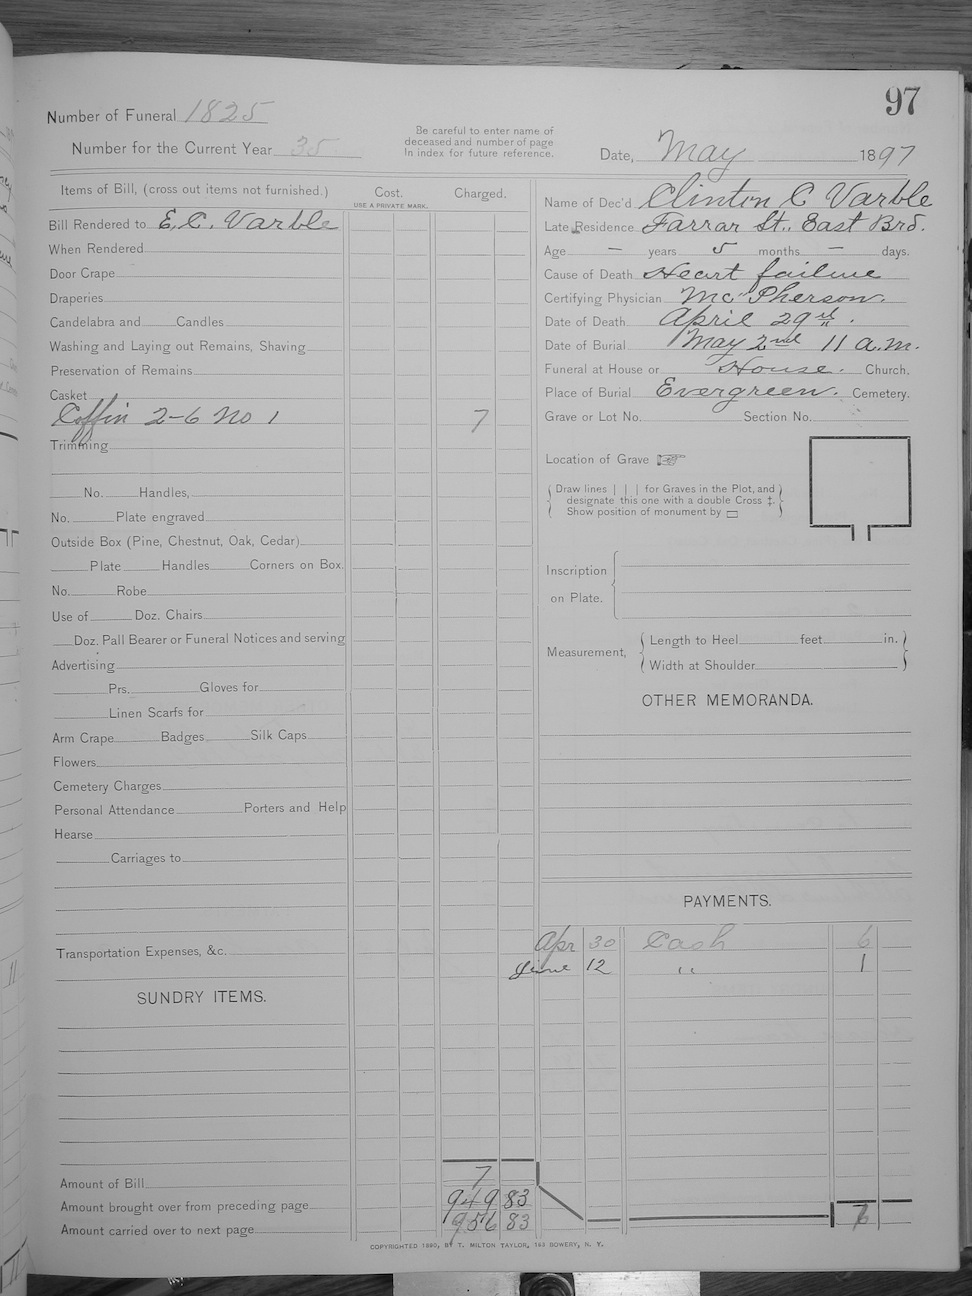 97
Number of Funeral 1825
Number for the Current Year 35
Be careful to enter name of
deceased and number of page
In index for future reference.
Date, May 1897
Items of Bill, (cross out items not furnished.)
Cost.
USE A PRIVATE MARK.
Charged.
Bill Rendered to E.C. Varble
When Rendered
Door Crape
Draperies
Candelabra and Candles
Washing and Laying out Remains, Shaving
Preservation of Remains
Casket
Coffin 2-6 No 1 7
Trimming
No. Handles,
No. Plate engraved
Outside Box (Pine, Chestnut, Oak, Cedar)
Plate Handles Corners on Box.
No. Robe
Use of Doz. Chairs
Doz. Pall Bearer or Funeral Notices and serving
Advertising
Prs. Gloves for
Linen Scarfs for
Arm Crape Badges Silk Caps
Flowers
Cemetery Charges
Personal Attendance Porters and Help
Hearse
Carriages to
Transportation Expenses, &c.
SUNDRY ITEMS.
Amount of Bill 7
Amount brought over from preceding page 949 83
Amount carried over to next page 956 83
Name of Dec'd Clinton C Varble
Late Residence Farrar St., East Brd.
Age — years 5 months — days.
Cause of Death Heart failure
Certifying Physician McPherson.
Date of Death April 29th.
Date of Burial May 2nd 11 a.m.
Funeral at House or House. Church.
Place of Burial Evergreen. Cemetery.
Grave or Lot No. Section No.
Location of Grave ☞
Draw lines | | | for Graves in the Plot, and
designate this one with a double Cross ‡.
Show position of monument by ▭
Inscription
on Plate.
Measurement,
Length to Heel feet in.
Width at Shoulder
OTHER MEMORANDA.
PAYMENTS.
Apr 30 Cash 6
June 12 " 1
7
COPYRIGHTED 1890, BY T. MILTON TAYLOR, 163 BOWERY, N. Y.